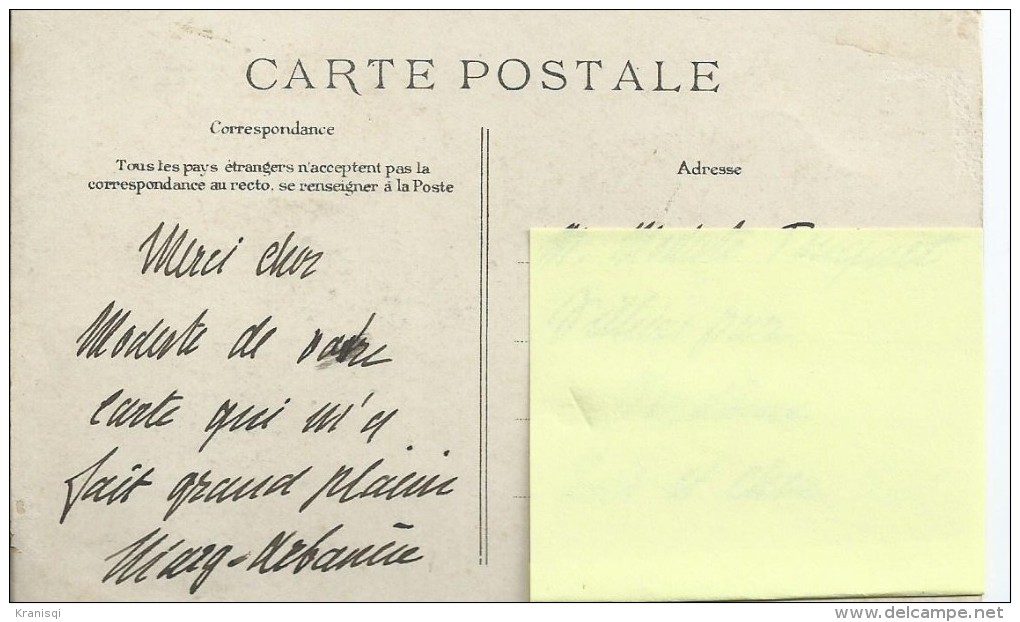 CARTE POSTALE
Correspondance
Tous les pays étrangers n'acceptent pas la
correspondance au recto, se renseigner à la Poste
Adresse
Merci cher
Modeste de votre
carte qui m'a
fait grand plaisir
Marg-
Kranisqi
www.delcampe.net